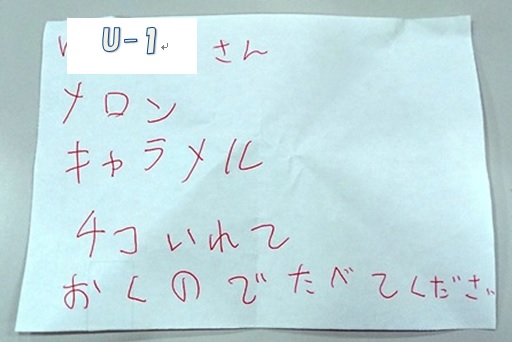 U-1 さん
メロン
キャラメル
チコいれて
おくのでたべてください